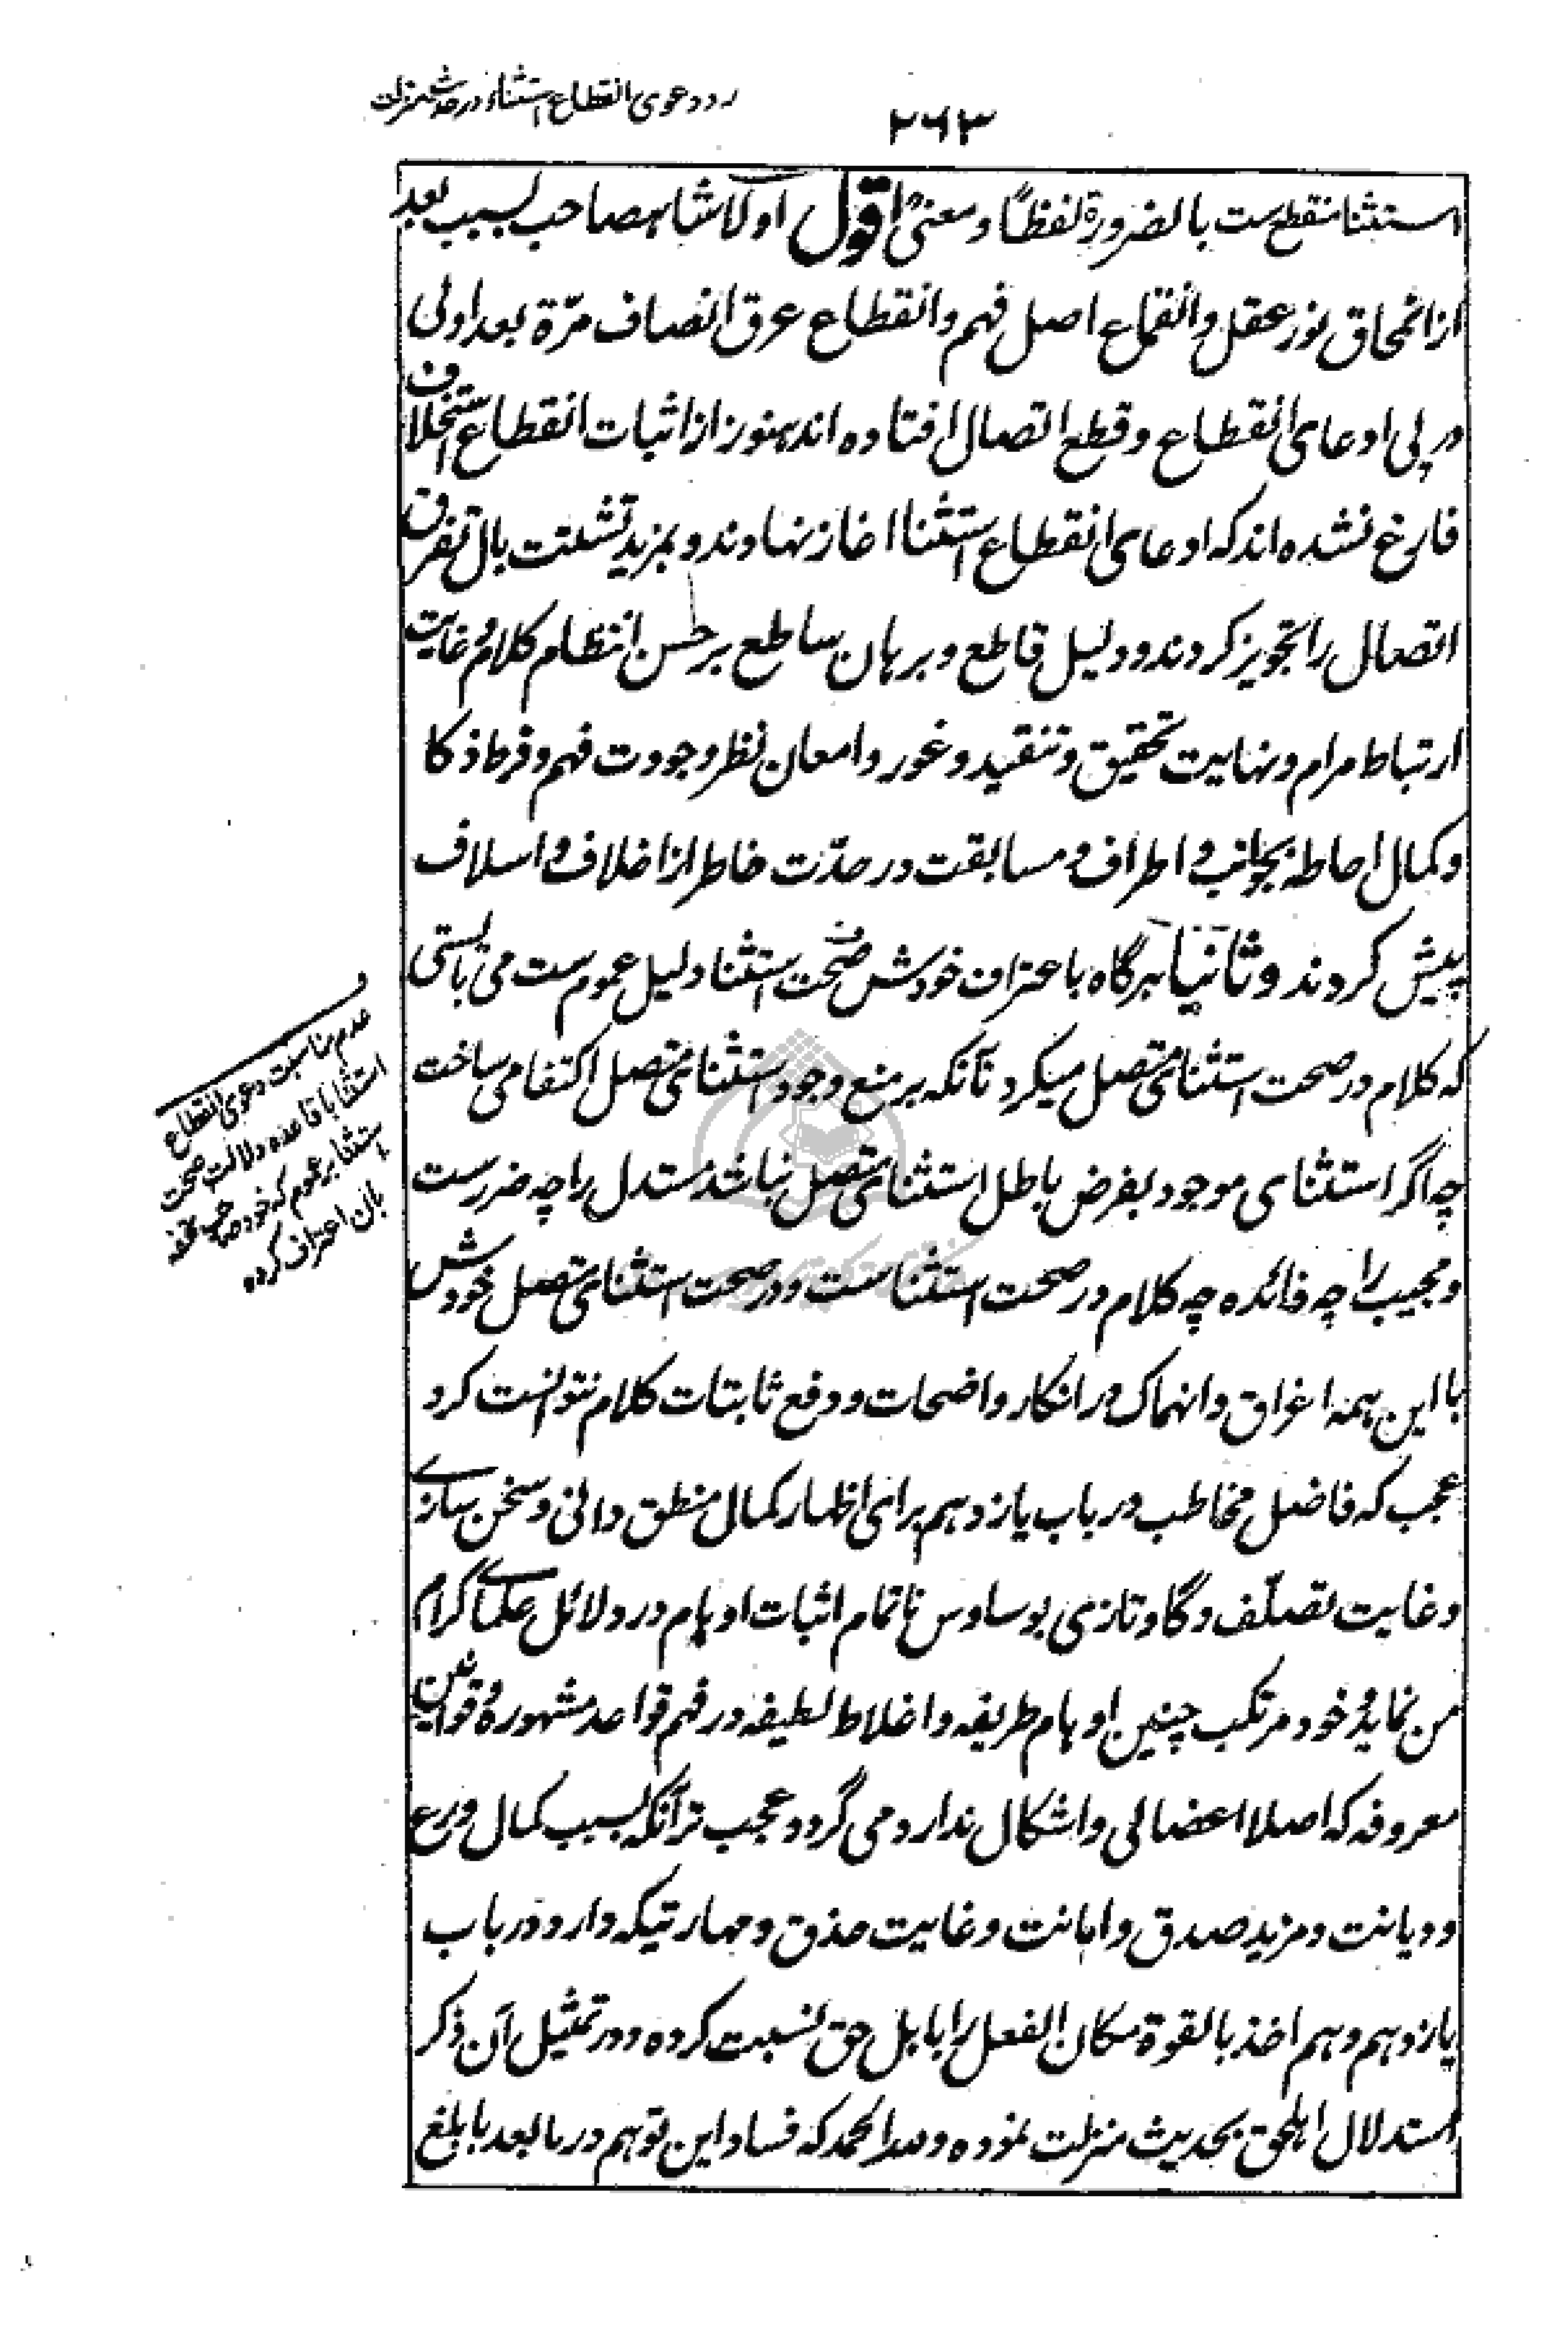 رد دعوی انقطاع استثناء در حدیث منزلت
۲۶۳
استثنا منقطع ست بالضرورة لفظًا و معنیً اقول اولا شاهصاحب بسبب بعد
از انمحاق نور عقل و انقماع اصل فهم و انقطاع عرق انصاف مرّة بعد اولی
در پی ادعای انقطاع و قطع اتصال افتاده اند هنوز از اثبات انقطاع استخلاف
فارغ نشده اند که ادعای انقطاع استثنا اغاز نهادند و بمزید تشتت بال تفرق
اتصال را تجویز کردند و دلیل قاطع و برهان ساطع بر حسن انتظام کلام و غایت
ارتباط مرام و نهایت تحقیق و تنقید و غور و امعان نظر و جودت فهم و فرط ذکا
و کمال احاطه بجوانب و اطراف و مسابقت در حدّت خاطر از اخلاف و اسلاف
پیش کردند و ثانیا هرگاه باعتراف خودش صحت استثنا دلیل عموم ست می بایستی
که کلام در صحت استثنای متصل میکرد نآنکه بر منع وجود استثنای متصل اکتفا می ساخت
چه اگر استثنای موجود بفرض باطل استثنای متصل نباشد مستدل را چه ضررست
و مجیب را چه فائده چه کلام در صحت استثناست و در صحت استثنای متصل خودش
با این همه اغراق و انهماک در انکار واضحات و دفع ثابتات کلام نتوانست کرد
عجب که فاضل مخاطب در باب یازدهم برای اظهار کمال منطق دانی و سخن سازے
و غایت تصلّف و گاوتازی بوساوس ناتمام اثبات اوهام در دلائل علماے کرام
من نماید و خود مرتکب چنین اوهام طریفه و اغلاط لطیفه در فهم قواعد مشهوره و قوانین
معروفه که اصلا اعضالی و اشکال ندارد می گردد و عجب تر آنکه بسبب کمال ورع
و دیانت و مزید صدق و امانت و غایت حذق و مهارتیکه دارد در باب
یازدهم وهم اخذ بالقوة مکان الفعل را باهل حق نسبت کرده و در تمثیل آن ذکر
استدلال اهلحق بحدیث منزلت نموده و لله الحمد که فساد این توهم در ما بعد بابلغ
عدم مناسبت دعوی انقطاع
استثنا با قاعده دلالت صحت
استثنا بر عموم که خود صاحب تحفه
بان اعتراف کرده